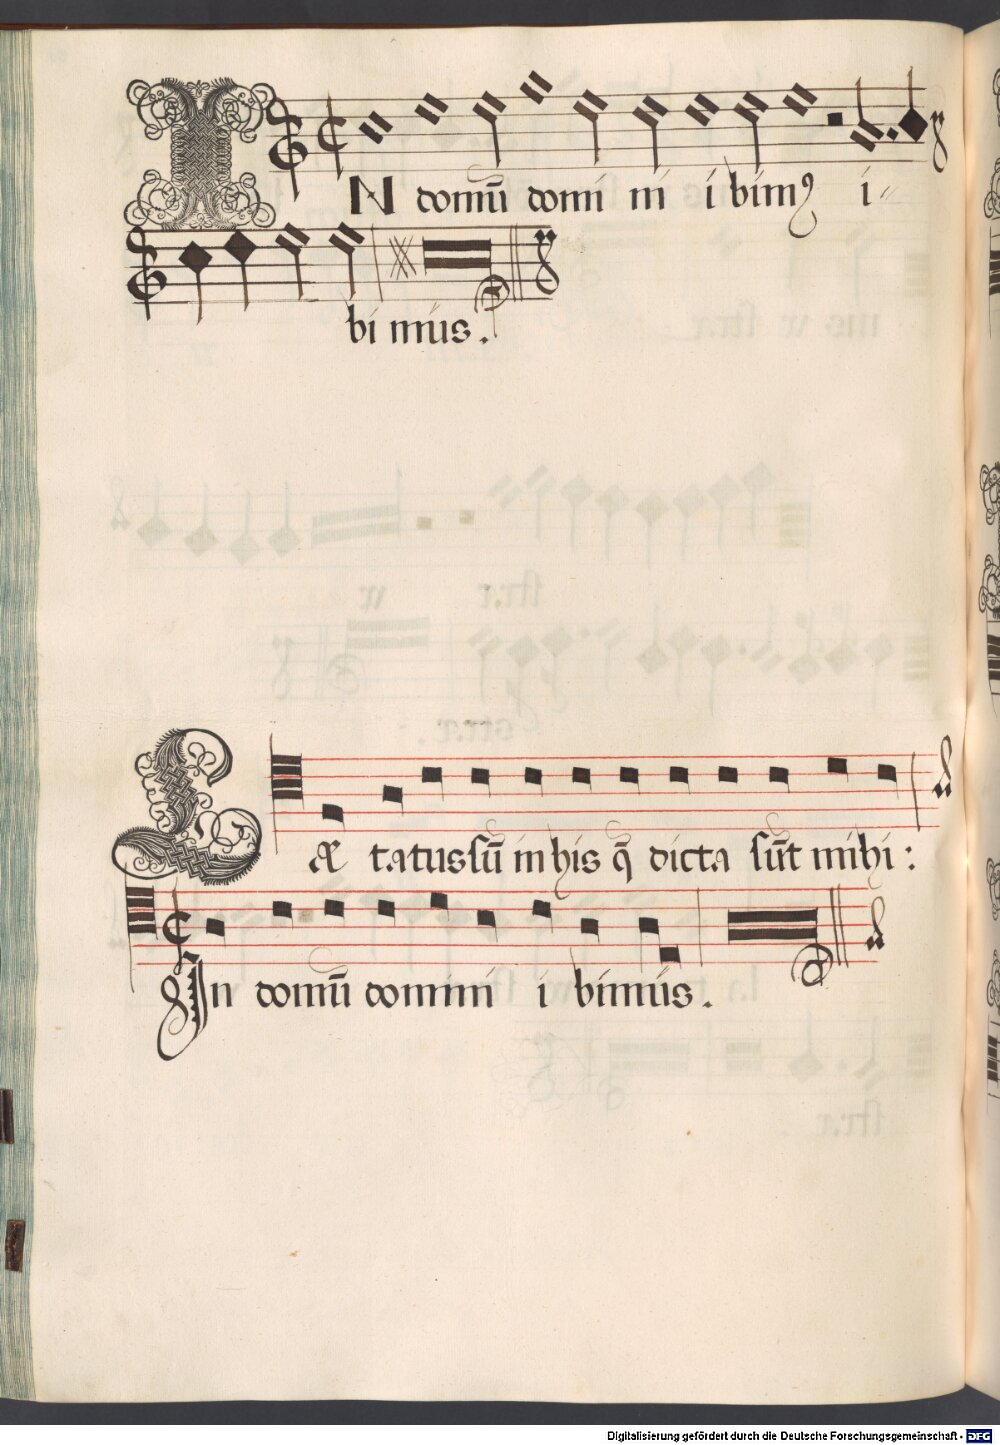 IN domū domi ni i bimꝰ i-
bi mus.
Læ tatus sū in his q̄ dicta sūt mihi:
In domū domini i bimus.
Digitalisierung gefördert durch die Deutsche Forschungsgemeinschaft - DFG